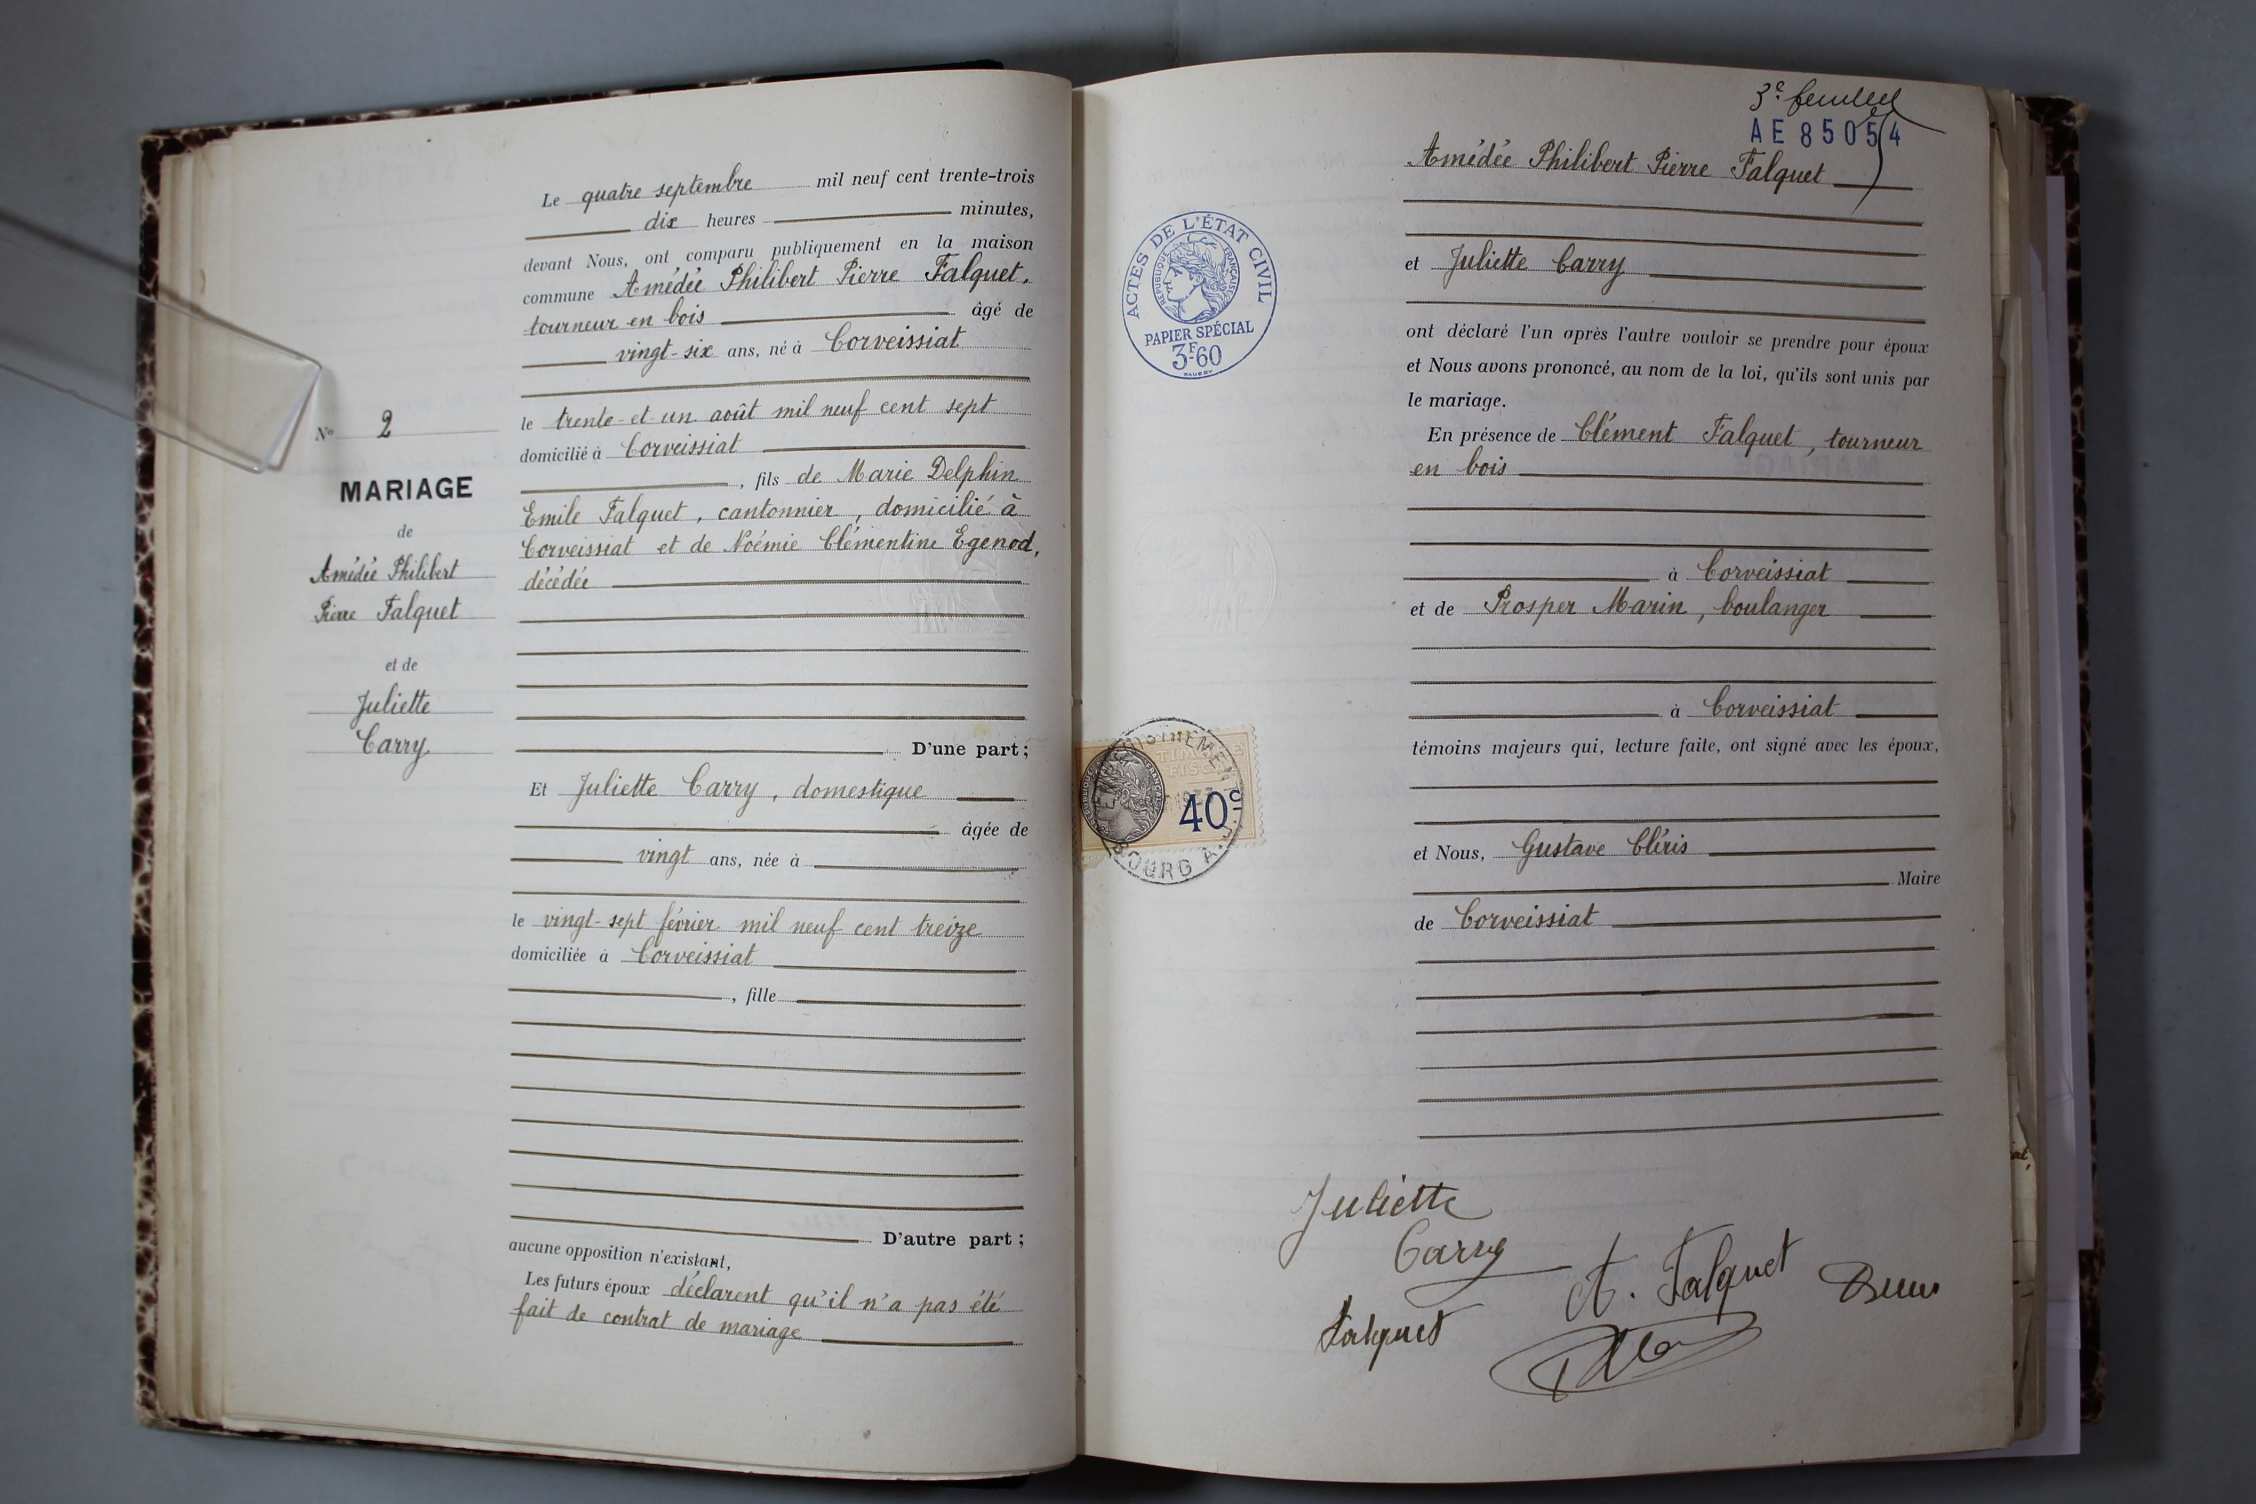 Le quatre septembre mil neuf cent trente-trois
dix heures minutes,
devant Nous, ont comparu publiquement en la maison
commune Amédée Philibert Pierre Falquet,
tourneur en bois âgé de
vingt-six ans, né à Corveissiat
le trente-et-un août mil neuf cent sept
domicilié à Corveissiat
, fils de Marie Delphin
Emile Falquet, cantonnier, domicilié à
Corveissiat et de Noémie Clémentine Egenod,
décédée
D'une part;
Et Juliette Carry, domestique
âgée de
vingt ans, née à
le vingt-sept février mil neuf cent treize
domiciliée à Corveissiat
, fille
D'autre part;
aucune opposition n'existant,
Les futurs époux déclarent qu'il n'a pas été
fait de contrat de mariage
No 2
MARIAGE
de
Amédée Philibert
Pierre Falquet
et de
Juliette
Carry
3e
AE 85054
Amédée Philibert Pierre Falquet
et Juliette Carry
ont déclaré l'un après l'autre vouloir se prendre pour époux
et Nous avons prononcé, au nom de la loi, qu'ils sont unis par
le mariage.
En présence de Clément Falquet, tourneur
en bois
à Corveissiat
et de Prosper Marin, boulanger
à Corveissiat
témoins majeurs qui, lecture faite, ont signé avec les époux,
et Nous, Gustave Cléris
Maire
de Corveissiat
ACTES DE L'ÉTAT CIVIL
RÉPUBLIQUE FRANÇAISE
PAPIER SPÉCIAL
3F60
40c
BOURG A.
Juliette
Carry
A. Falquet
Falquet